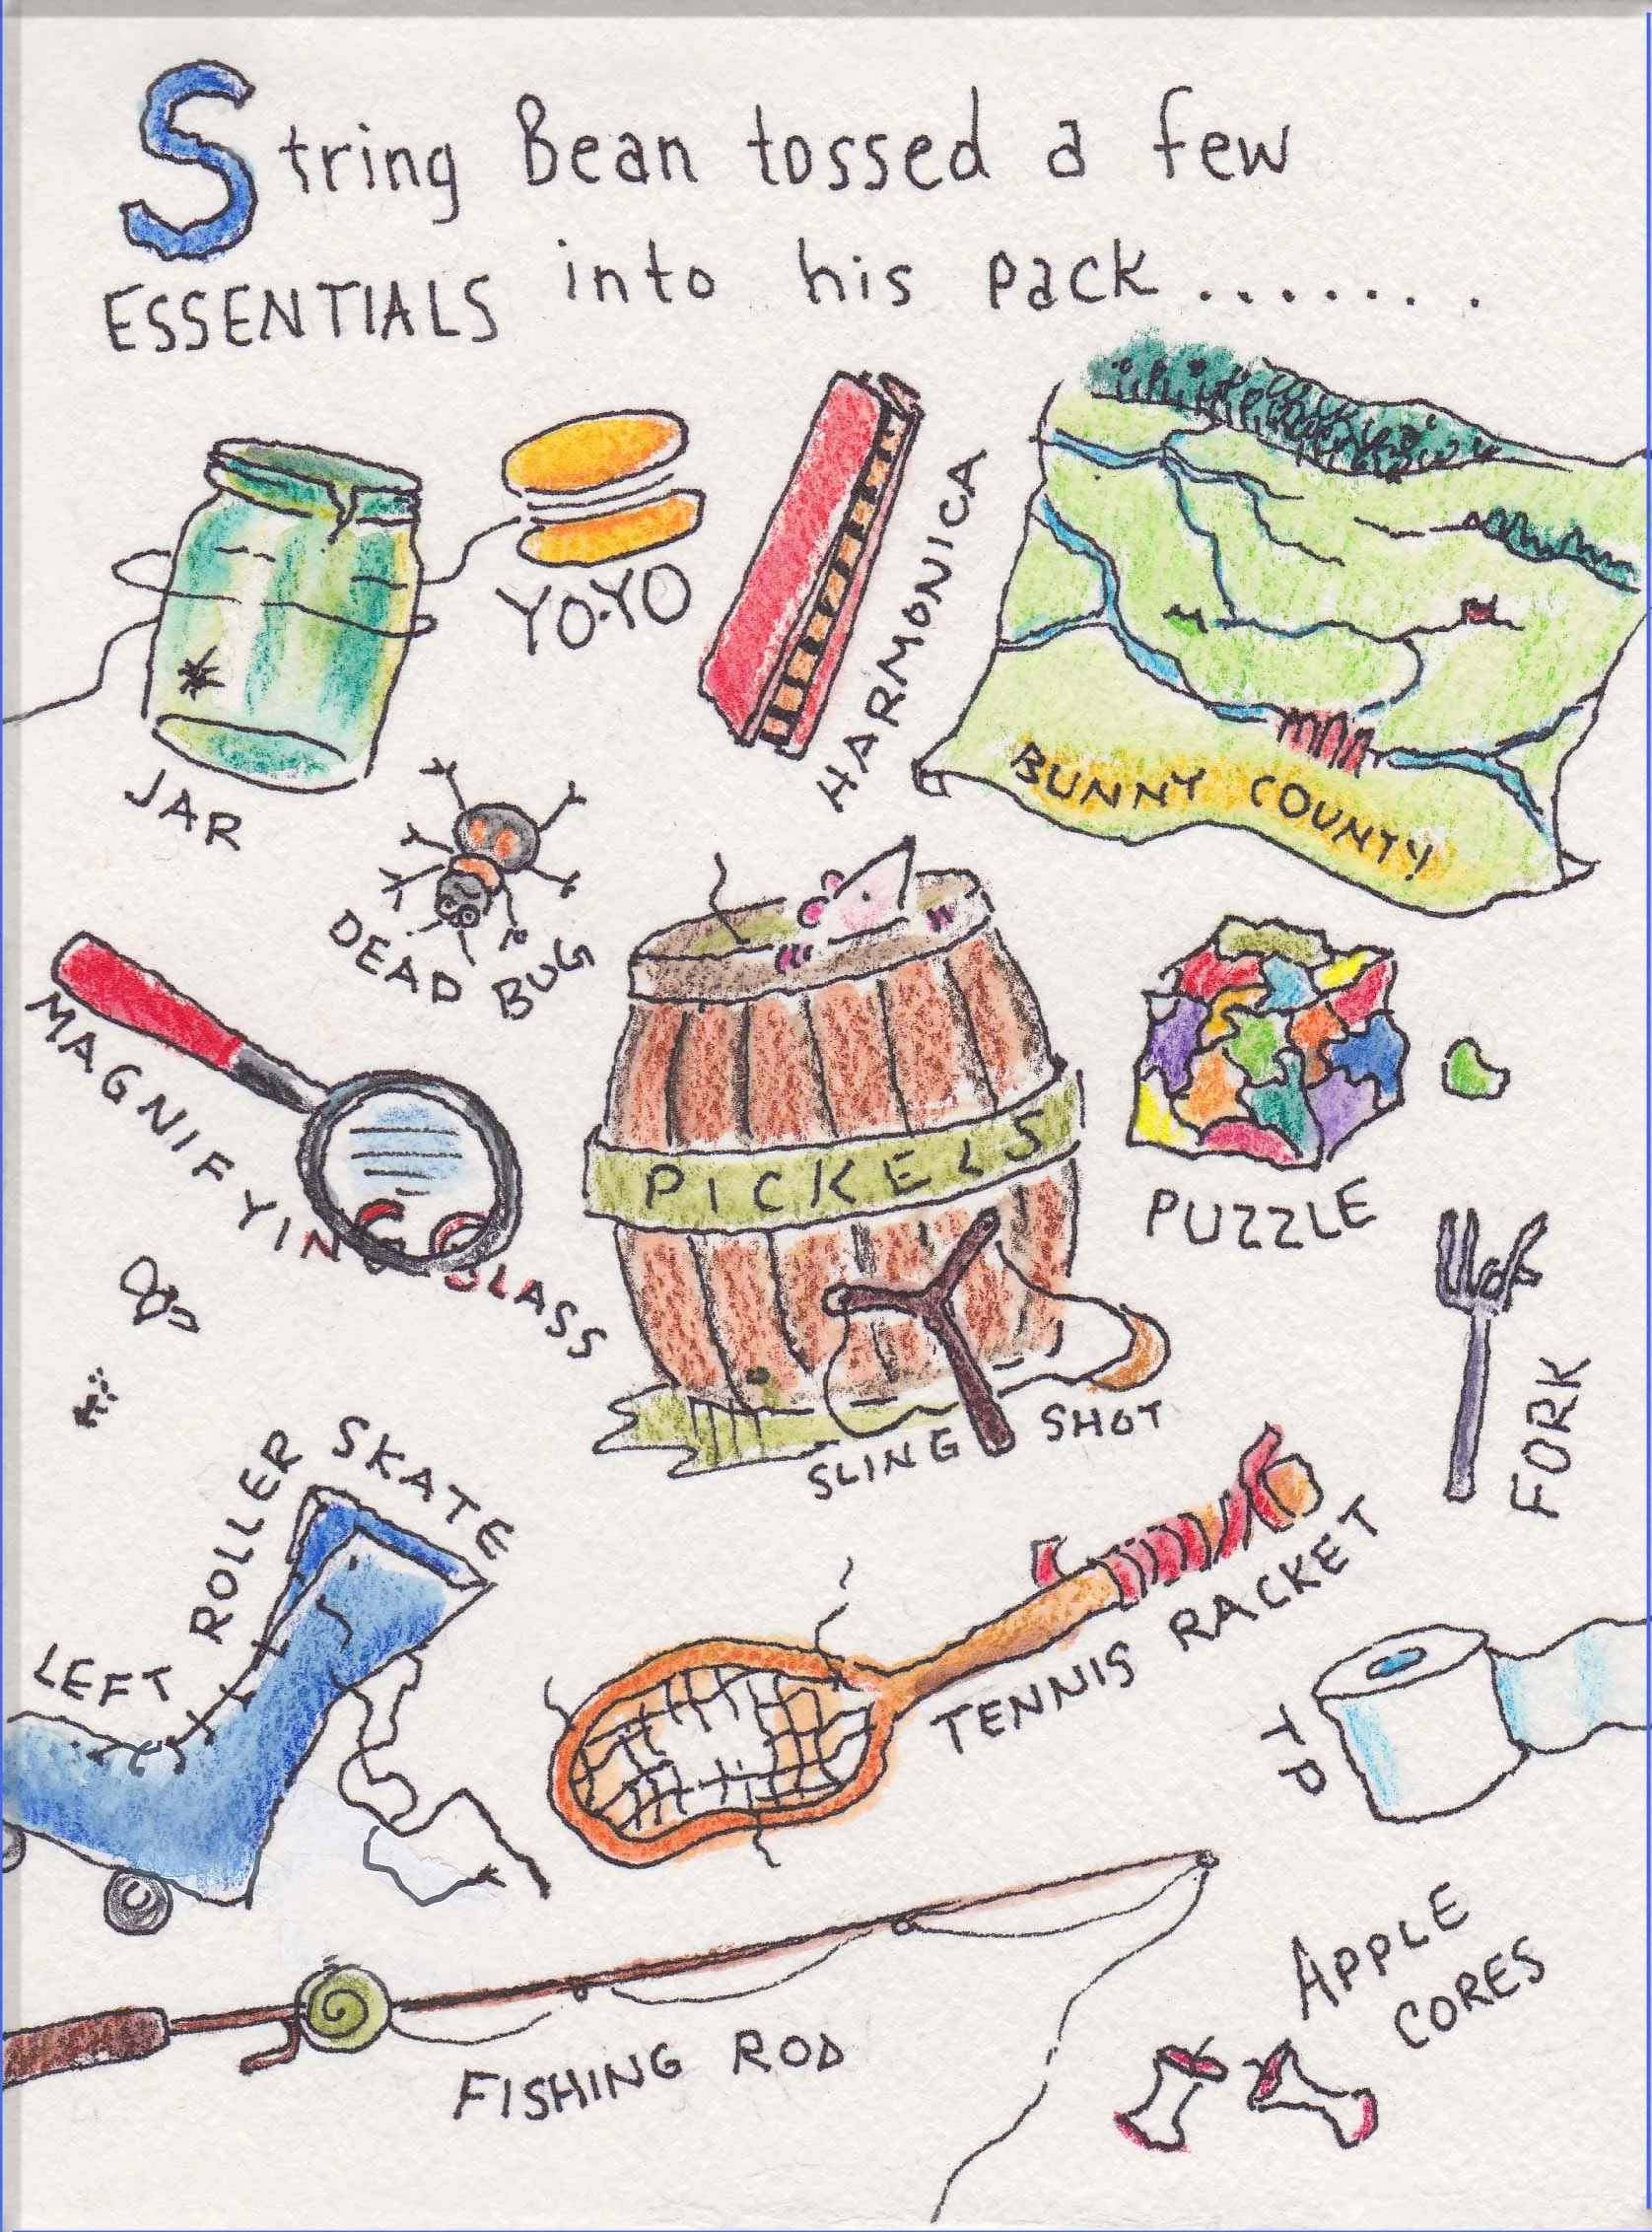 String Bean tossed a few
ESSENTIALS into his pack........
JAR
YO-YO
HARMONICA
BUNNY COUNTY
DEAD BUG
MAGNIFYING GLASS
PICKELS
PUZZLE
SLING SHOT
FORK
LEFT ROLLER SKATE
TENNIS RACKET
TP
FISHING ROD
APPLE
CORES